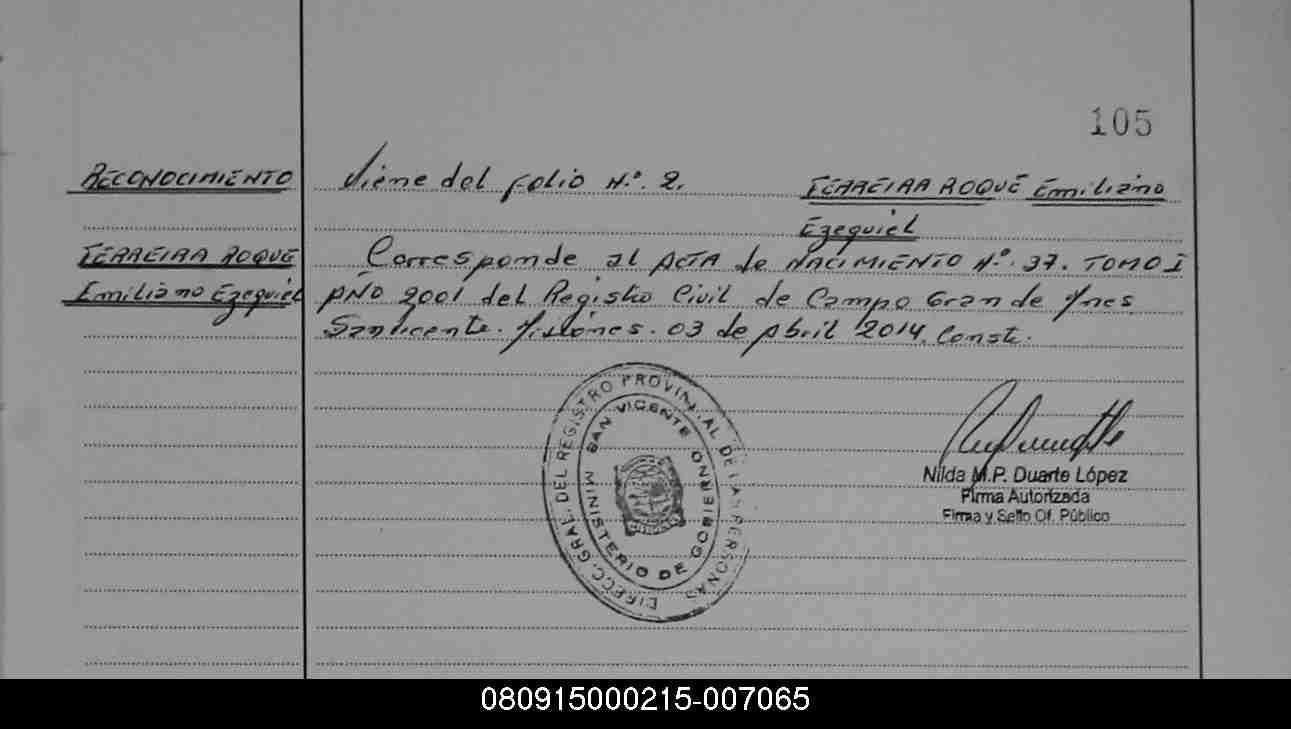 105
RECONOCIMIENTO
Viene del folio N.º 2.
FERREIRA ROQUE Emiliano
Ezequiel
FERREIRA ROQUE
Emiliano Ezequiel
Corresponde al ACTA de NACIMIENTO N.º 37. TOMO I
AÑO 2001 del Registro Civil de Campo Grande Mnes
San Vicente. Misiones. 03 de Abril 2014. Conste.
DIRECC. GRAL. DEL REGISTRO PROVINCIAL DE LAS PERSONAS
SAN VICENTE
MINISTERIO DE GOBIERNO
Nilda M.P. Duarte López
Firma Autorizada
Firma y Sello Of. Público
080915000215-007065